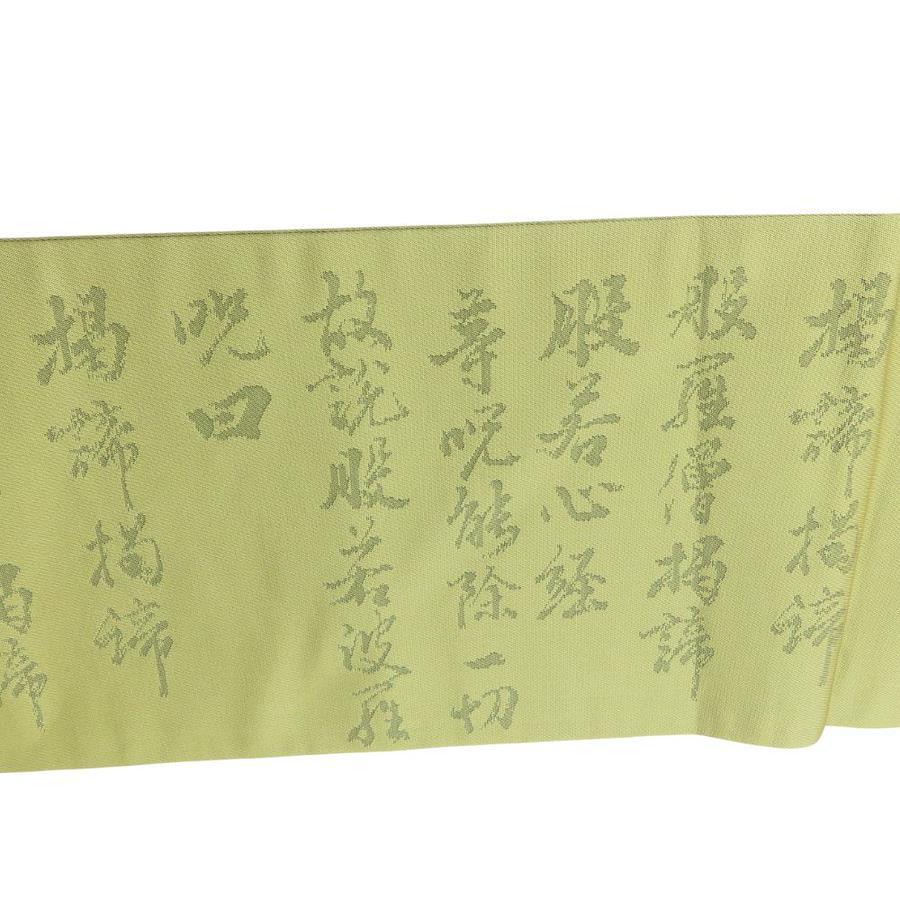 揭諦揭諦
般羅僧揭諦
般若心経
等呪能除一切
故説般若波羅
呪曰
揭諦揭諦